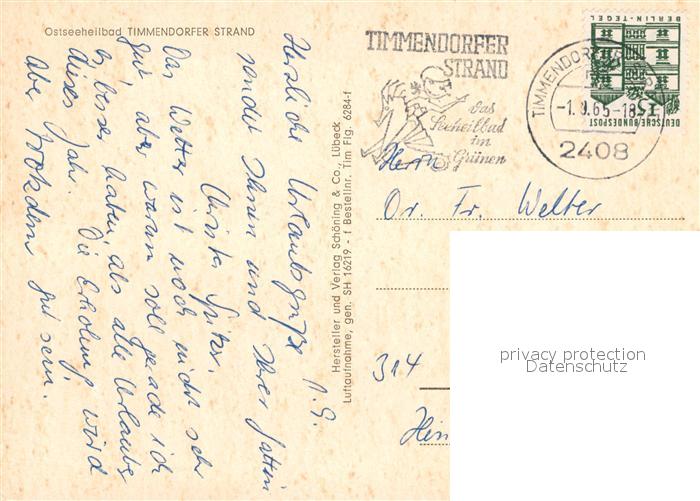 Ostseeheilbad TIMMENDORFER STRAND
Herzliche Urlaubsgrüße
sendet Ihnen und Ihrer Gattin
Christa
Das Wetter ist noch nicht sehr
gut, aber warum soll gerade ich
es besser haben, als alle Urlauber
dieses Jahr. Die Erholung wird
aber trotzdem gut sein.
Hersteller und Verlag Schöning & Co., Lübeck
Luftaufnahme, gen. SH 16219 - f Bestellnr. Tim Flg. 6284-f
TIMMENDORFER
STRAND
Das
Seeheilbad
im
Grünen
TIMMENDORFER
65-18
2408
BERLIN-TEGEL
15
DEUTSCHE BUNDESPOST
Herrn
Dr. Fr. Welter
314
privacy protection
Datenschutz